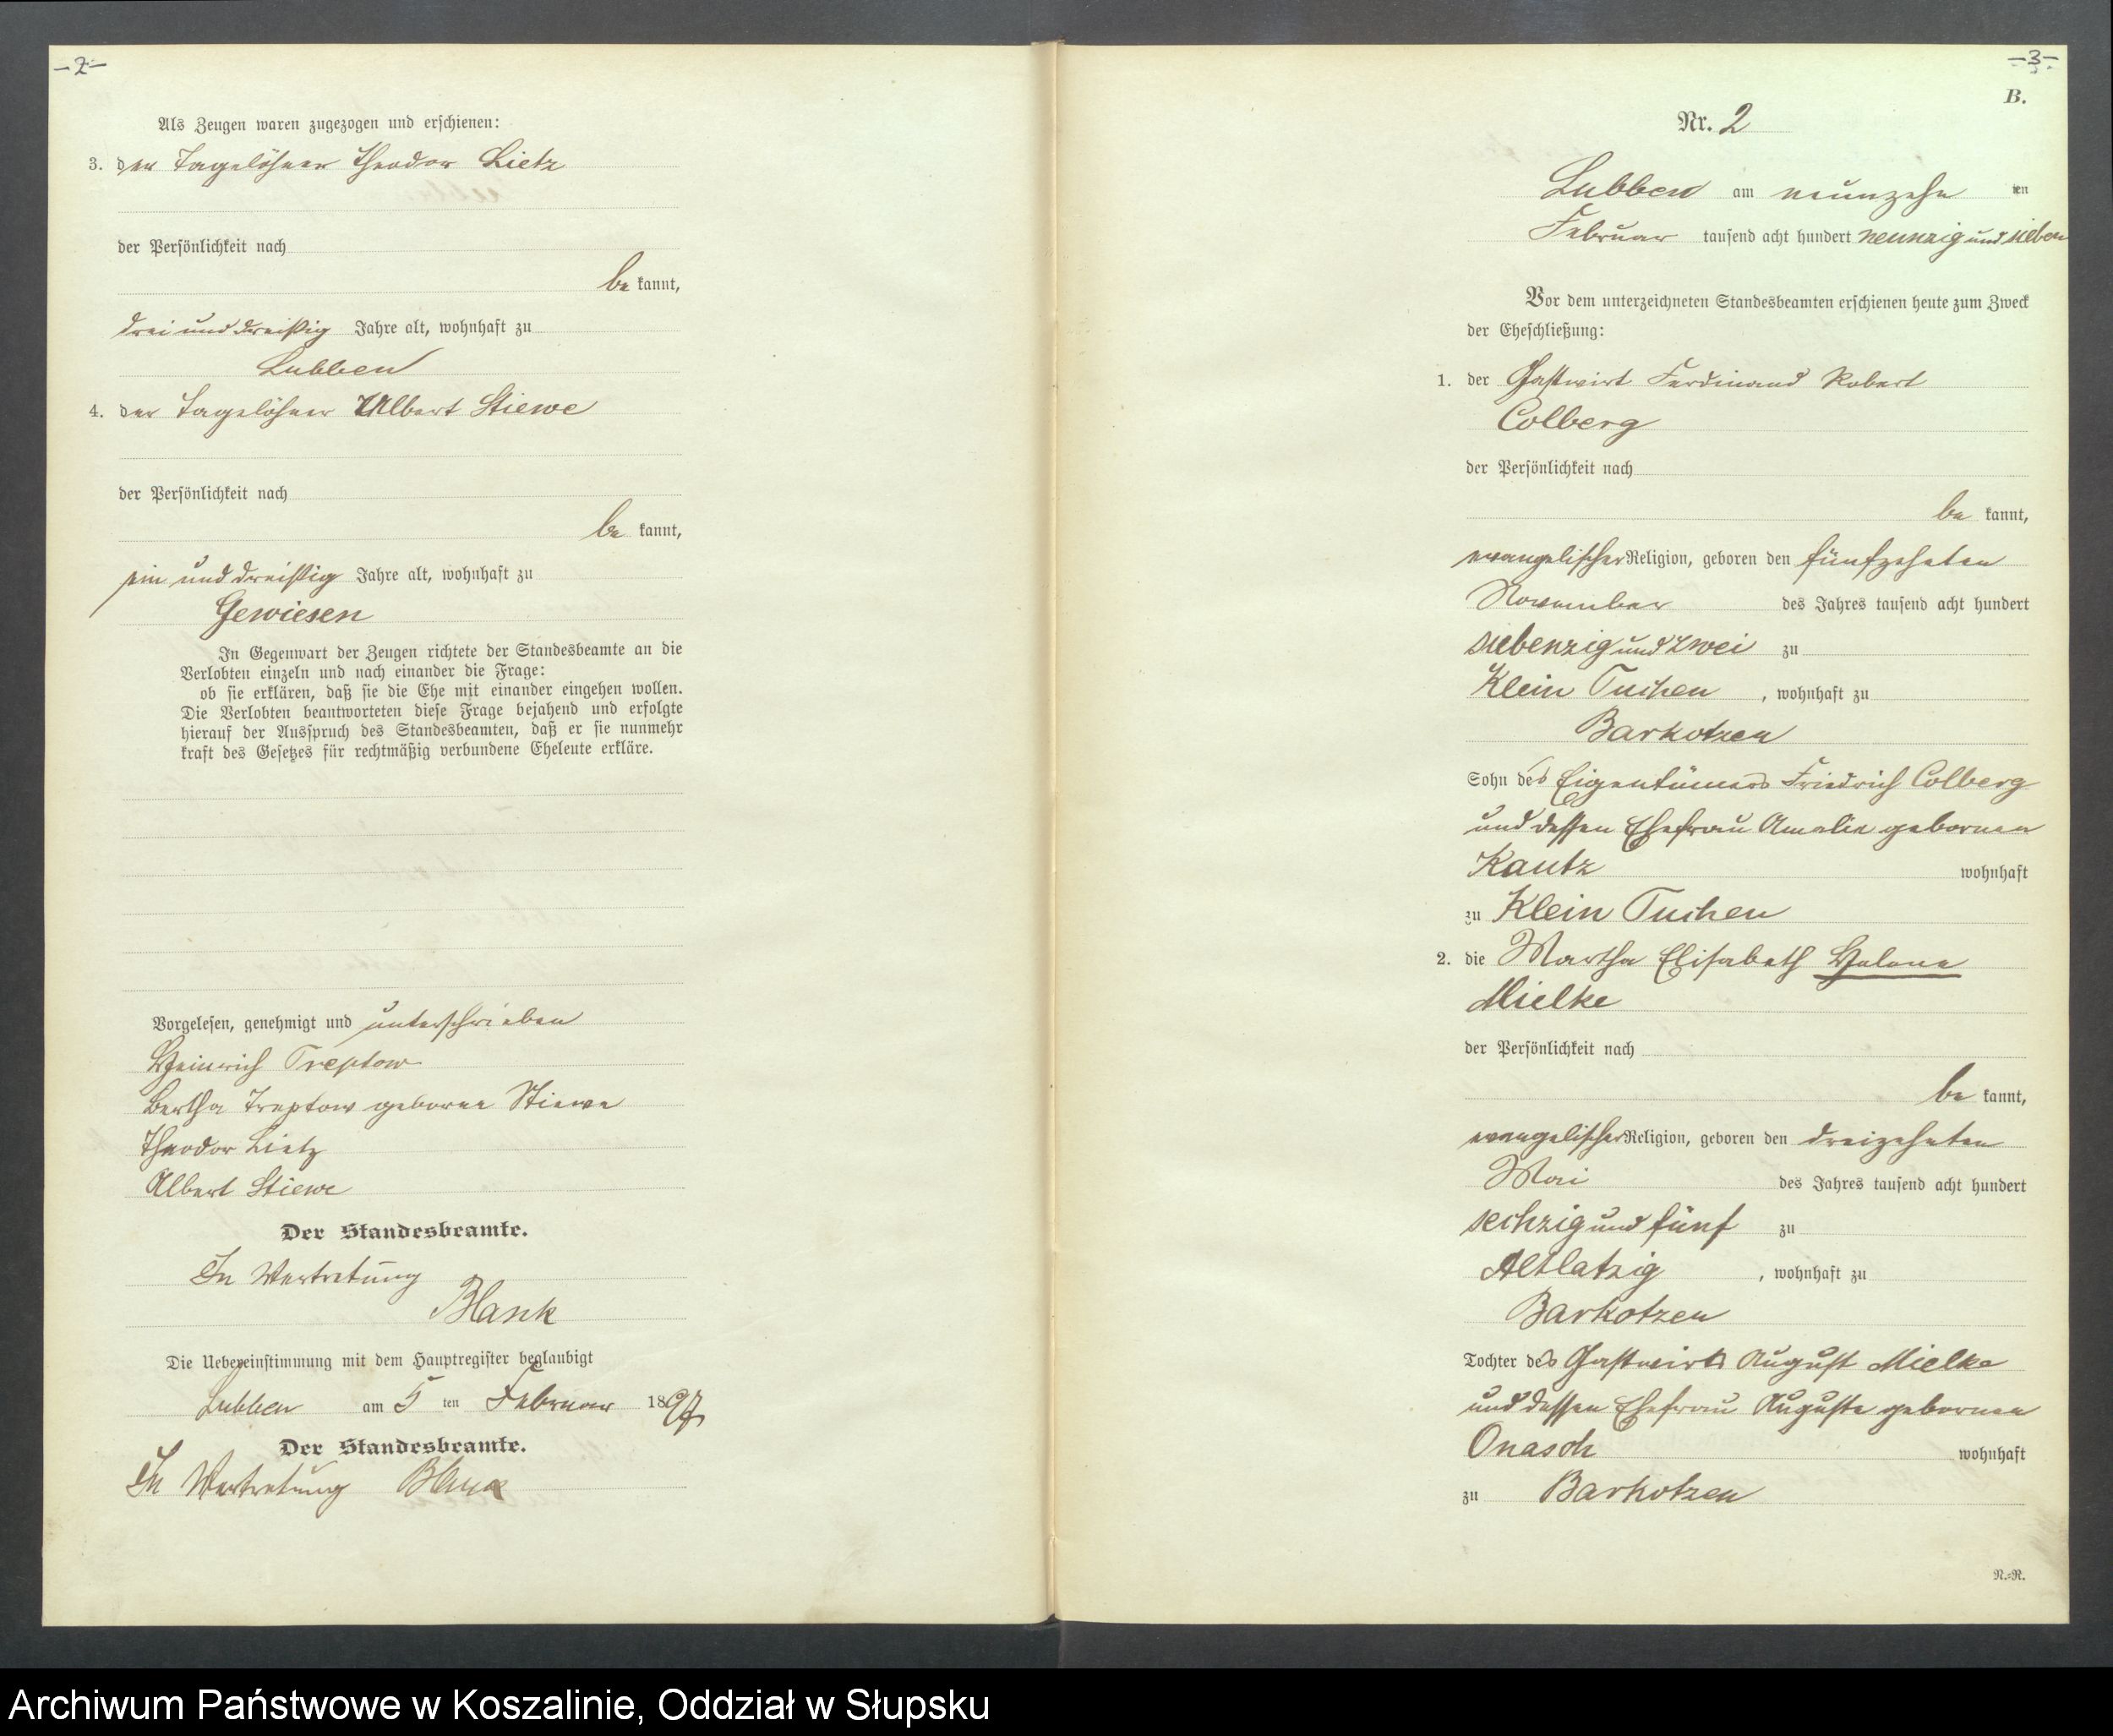 -2-
Als Zeugen waren zugezogen und erschienen:
3. der Tagelöhner Theodor Lietz
der Persönlichkeit nach
be kannt,
drei und dreißig Jahre alt, wohnhaft zu
Lubben
4. der Tagelöhner Albert Stiewe
der Persönlichkeit nach
be kannt,
ein und dreißig Jahre alt, wohnhaft zu
Gewiesen
In Gegenwart der Zeugen richtete der Standesbeamte an die
Verlobten einzeln und nach einander die Frage:
ob sie erklären, daß sie die Ehe mit einander eingehen wollen.
Die Verlobten beantworteten diese Frage bejahend und erfolgte
hierauf der Ausspruch des Standesbeamten, daß er sie nunmehr
kraft des Gesetzes für rechtmäßig verbundene Eheleute erkläre.
Vorgelesen, genehmigt und unterschrieben
Heinrich Treptow
Bertha Treptow geborne Stiewe
Theodor Lietz
Albert Stiewe
Der Standesbeamte.
In Vertretung
Blank
Die Uebereinstimmung mit dem Hauptregister beglaubigt
Lubben am 5 ten Februar 1897
Der Standesbeamte.
In Vertretung Blank
-3-
B.
Nr. 2
Lubben am neunzehn ten
Februar tausend acht hundert neunzig und sieben
Vor dem unterzeichneten Standesbeamten erschienen heute zum Zweck
der Eheschließung:
1. der Gastwirt Ferdinand Robert
Colberg
der Persönlichkeit nach
be kannt,
evangelischer Religion, geboren den fünfzehnten
November des Jahres tausend acht hundert
siebenzig und zwei zu
Klein Tuchen, wohnhaft zu
Barkotzen
Sohn des Eigentümers Friedrich Colberg
und dessen Ehefrau Amalie gebornen
Kautz wohnhaft
zu Klein Tuchen
2. die Martha Elisabeth Helene
Mielke
der Persönlichkeit nach
be kannt,
evangelischer Religion, geboren den dreizehnten
Mai des Jahres tausend acht hundert
sechzig und fünf zu
Altlatzig, wohnhaft zu
Barkotzen
Tochter des Gastwirts August Mielke
und dessen Ehefrau Auguste gebornen
Onasch wohnhaft
zu Barkotzen
N.=R.
Archiwum Państwowe w Koszalinie, Oddział w Słupsku